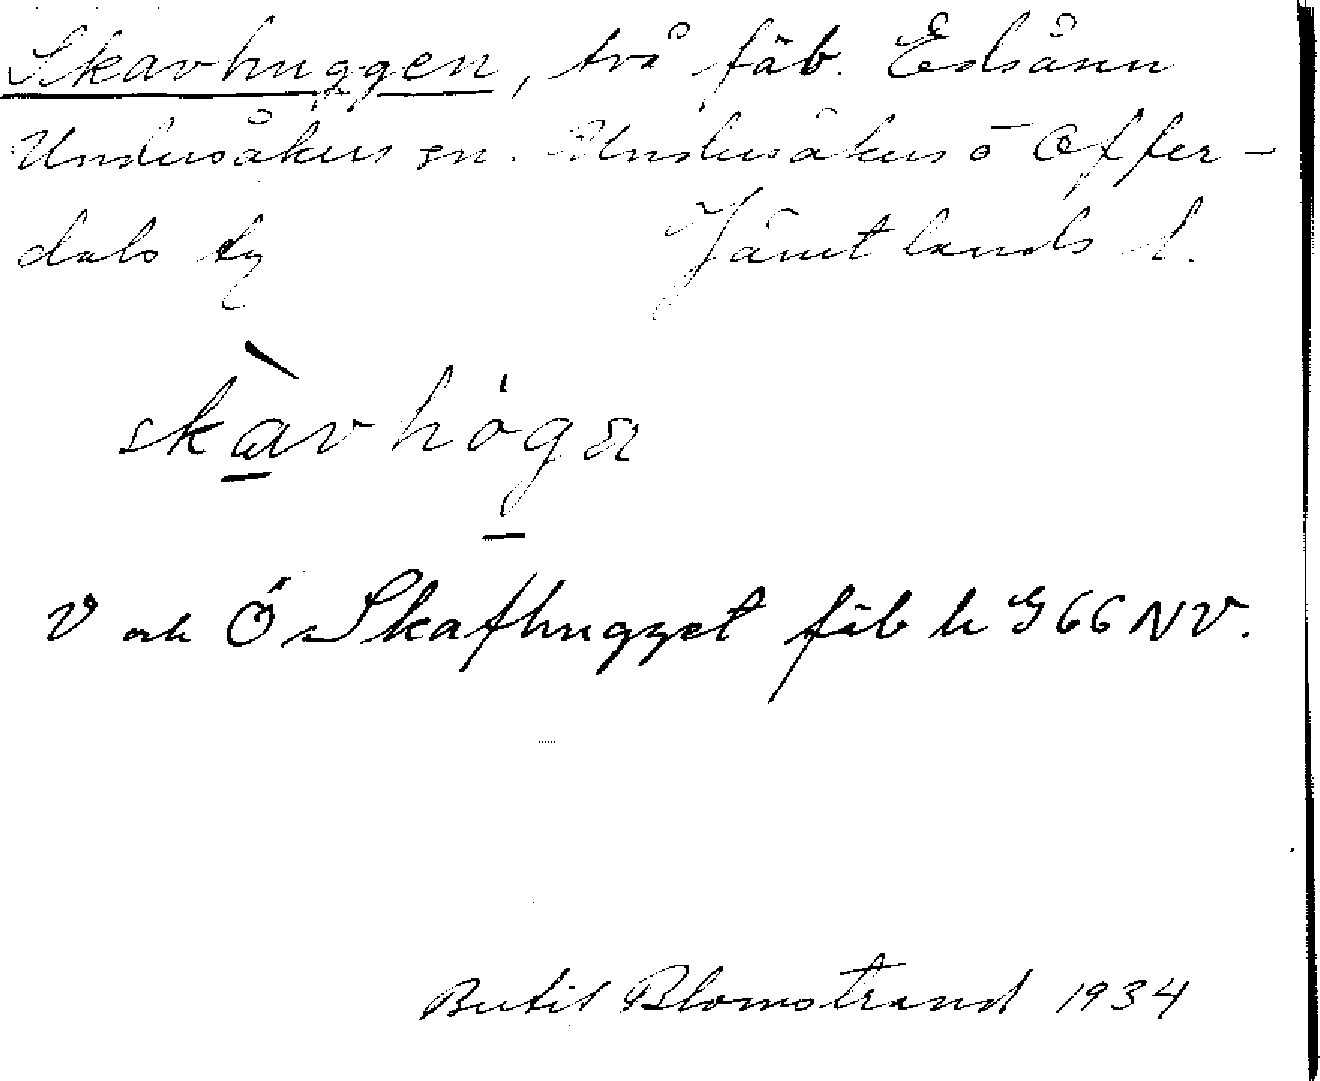 Skavhuggen, två fäb. Edsånn
Undersåkers sn. Undersåkers o Offer-
dals tg Jämtlands l.
skàvhöga
V och Ö Skafhugget fäb k G66NV.
Bertil Blomstrand 1934